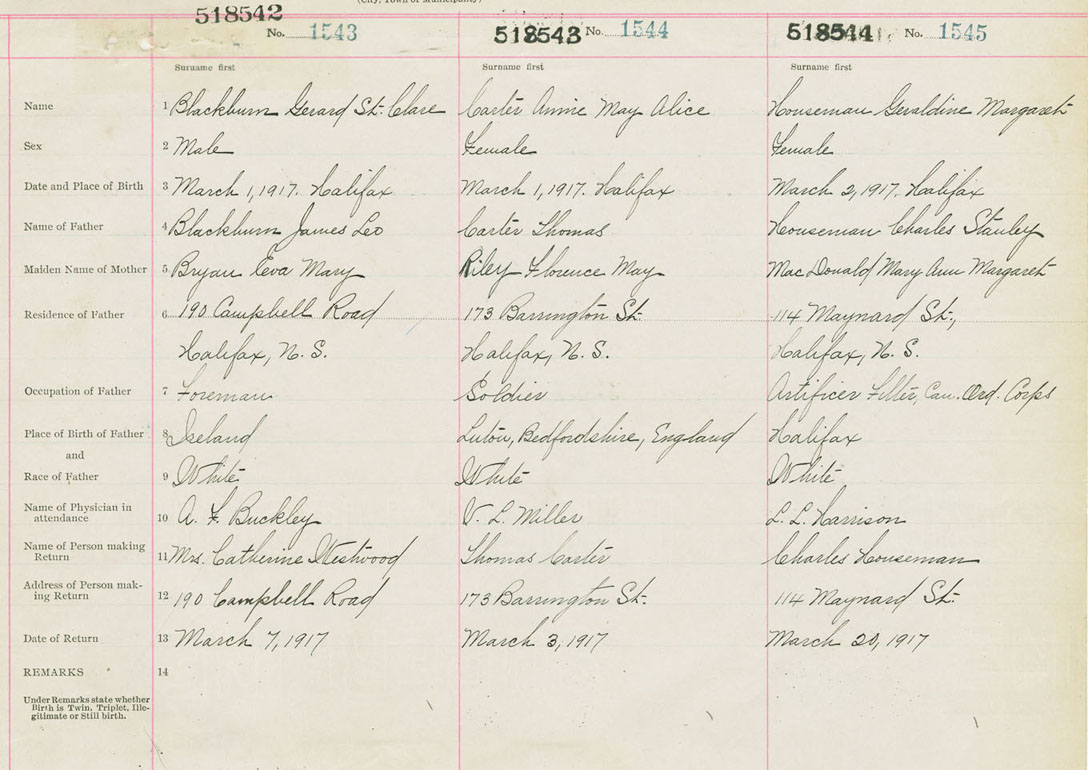 (City, Town or Municipality)
518542 No. 1543 518543 No. 1544 518544 No. 1545
Surname first Surname first Surname first
Name 1 Blackburn Gerard St. Clare Carter Annie May Alice Houseman Geraldine Margaret
Sex 2 Male Female Female
Date and Place of Birth 3 March 1, 1917. Halifax March 1, 1917. Halifax March 2, 1917. Halifax
Name of Father 4 Blackburn James Leo Carter Thomas Houseman Charles Stanley
Maiden Name of Mother 5 Bryan Eva Mary Riley Florence May Mac Donald Mary Ann Margaret
Residence of Father 6 190 Campbell Road 173 Barrington St. 114 Maynard St.,
Halifax, N. S. Halifax, N. S. Halifax, N. S.
Occupation of Father 7 Foreman Soldier Artificer Fitter, Can. Ord. Corps
Place of Birth of Father 8 Ireland Luton, Bedfordshire, England Halifax
and
Race of Father 9 White White White
Name of Physician in
attendance 10 A. F. Buckley V. L. Miller L. L. Harrison
Name of Person making
Return 11 Mrs. Catherine Westwood Thomas Carter Charles Houseman
Address of Person mak-
ing Return 12 190 Campbell Road 173 Barrington St. 114 Maynard St.
Date of Return 13 March 7, 1917 March 3, 1917 March 20, 1917
REMARKS 14
Under Remarks state whether
Birth is Twin, Triplet, Ille-
gitimate or Still birth.